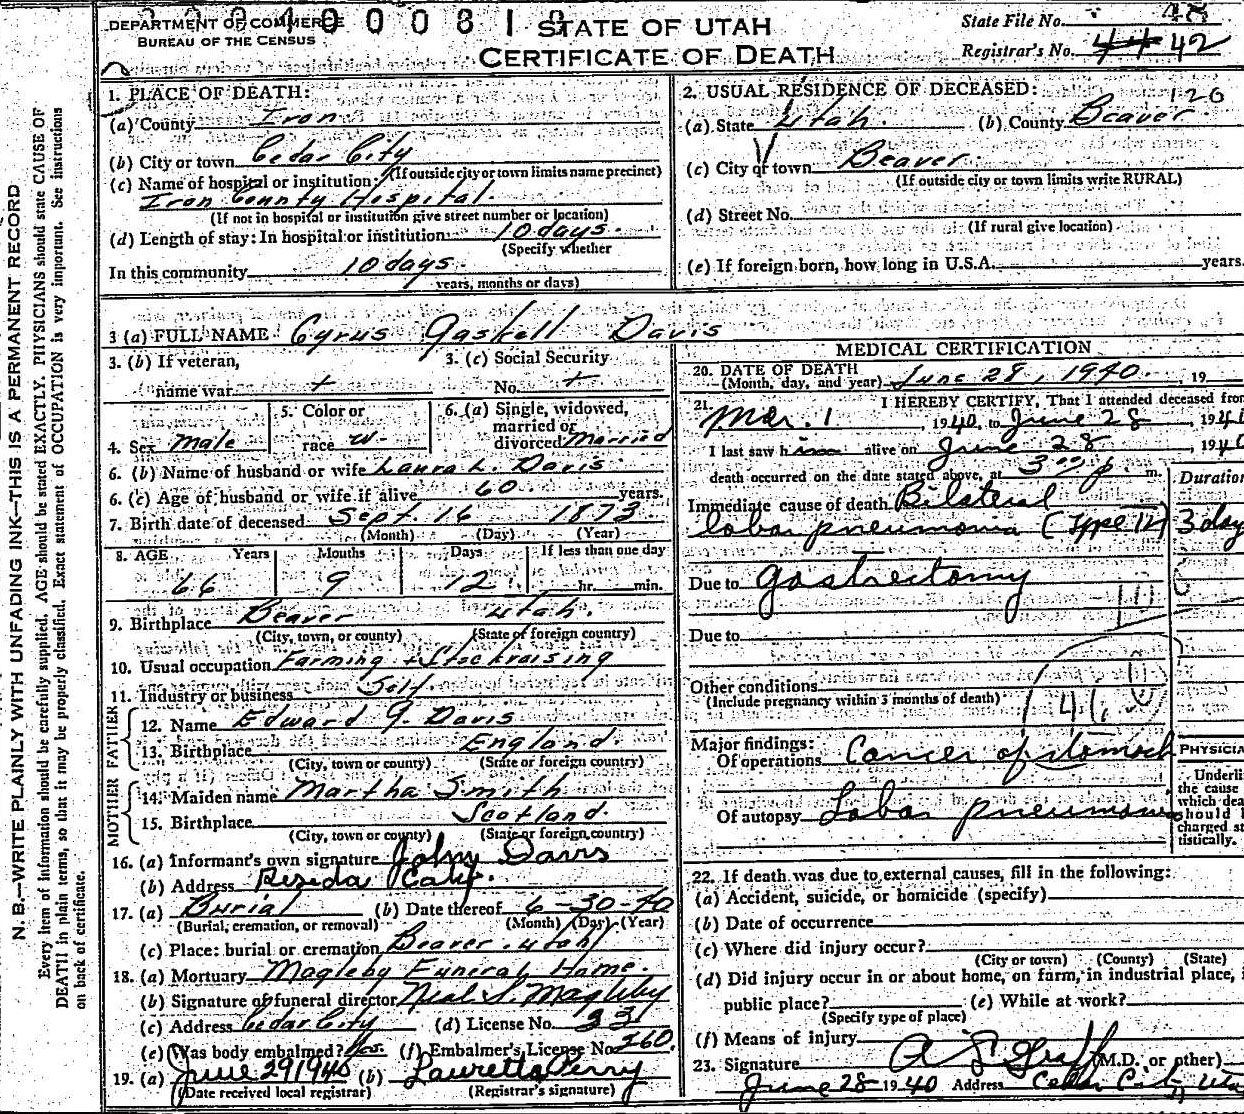 DEPARTMENT OF COMMERCE
BUREAU OF THE CENSUS
STATE OF UTAH
CERTIFICATE OF DEATH
State File No.
Registrar's No. 44 42
N. B.—WRITE PLAINLY WITH UNFADING INK—THIS IS A PERMANENT RECORD
Every item of information should be carefully supplied. AGE should be stated EXACTLY. PHYSICIANS should state CAUSE OF
DEATH in plain terms, so that it may be properly classified. Exact statement of OCCUPATION is very important. See instructions
on back of certificate.
1. PLACE OF DEATH:
(a) County Iron
(b) City or town Cedar City
(If outside city or town limits name precinct)
(c) Name of hospital or institution:
Iron County Hospital.
(If not in hospital or institution give street number or location)
(d) Length of stay: In hospital or institution 10 days.
(Specify whether
In this community 10 days.
years, months or days)
2. USUAL RESIDENCE OF DECEASED: 126
(a) State Utah. (b) County Beaver.
(c) City or town Beaver.
(If outside city or town limits write RURAL)
(d) Street No.
(If rural give location)
(e) If foreign born, how long in U.S.A. years.
3 (a) FULL NAME Cyrus Gaskell Davis
3. (b) If veteran,
name war
3. (c) Social Security
No.
4. Sex Male
5. Color or
race w.
6. (a) Single, widowed,
married or
divorced Married
6. (b) Name of husband or wife Laura L. Davis.
6. (c) Age of husband or wife if alive 60 years.
7. Birth date of deceased Sept. 16 1873.
(Month) (Day) (Year)
8. AGE Years Months Days If less than one day
66 9 12 hr. min.
9. Birthplace Beaver Utah.
(City, town, or county) (State or foreign country)
10. Usual occupation Farming + Stockraising
11. Industry or business Self.
FATHER
12. Name Edward G. Davis
13. Birthplace England.
(City, town, or county) (State or foreign country)
MOTHER
14. Maiden name Martha Smith
15. Birthplace Scotland.
(City, town or county) (State or foreign country)
16. (a) Informant's own signature John Davis
(b) Address Reseda Calif.
17. (a) Burial (b) Date thereof 6-30-40
(Burial, cremation, or removal) (Month) (Day) (Year)
(c) Place: burial or cremation Beaver, Utah
18. (a) Mortuary Magleby Funeral Home.
(b) Signature of funeral director Neal S. Magleby
(c) Address Cedar City (d) License No. 33
(e) Was body embalmed? Yes. (f) Embalmer's License No. 260.
19. (a) June 29 1940 (b) Lauretta Perry
(Date received local registrar) (Registrar's signature)
MEDICAL CERTIFICATION
20. DATE OF DEATH
(Month, day, and year) June 28, 1940. , 19
21. I HEREBY CERTIFY, That I attended deceased from
Mar. 1 , 1940 to June 28 , 1940
I last saw him alive on June 28 1940
death occurred on the date stated above, at 3 00 p. m.
Duration
Immediate cause of death Bilateral
lobar pneumonia (Type IV) 3 day
Due to gastrectomy
Due to
Other conditions
(Include pregnancy within 3 months of death)
46
Major findings:
Of operations Cancer of stomach
Of autopsy Lobar pneumonia
PHYSICIA
Underli
the cause
which dea
should b
charged st
tistically.
22. If death was due to external causes, fill in the following:
(a) Accident, suicide, or homicide (specify)
(b) Date of occurrence
(c) Where did injury occur?
(City or town) (County) (State)
(d) Did injury occur in or about home, on farm, in industrial place, i
public place? (e) While at work?
(Specify type of place)
(f) Means of injury
23. Signature A L Graff (M.D. or other)
June 28 1940 Address Cedar City, Uta